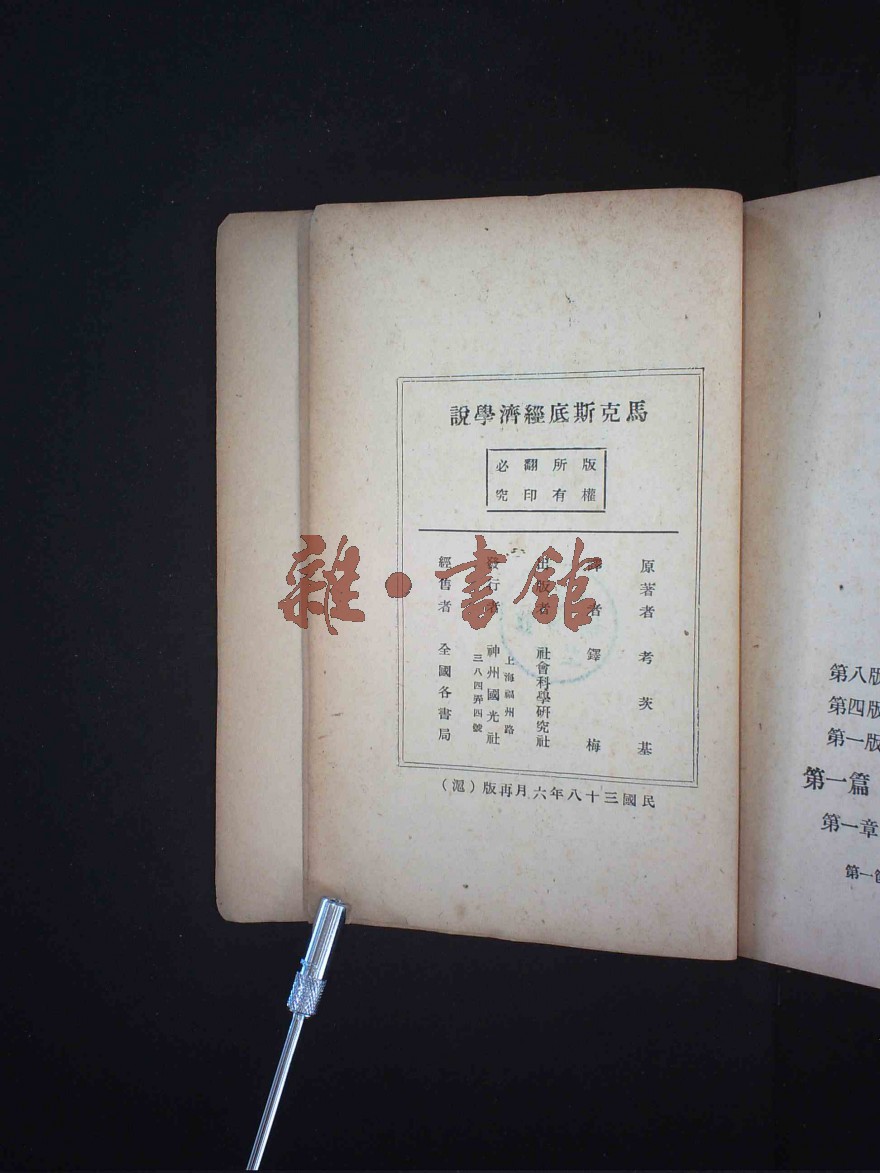 馬克斯底經濟學說
版權
所有
翻印
必究
原著者 考茨基
譯者 鐸梅
出版者 社會科學研究社
發行者 神州國光社
上海福州路
三八四弄四號
經售者 全國各書局
民國三十八年六月再版（滬）
雜·書館
第八版
第四版
第一版
第一篇
第一章
第一